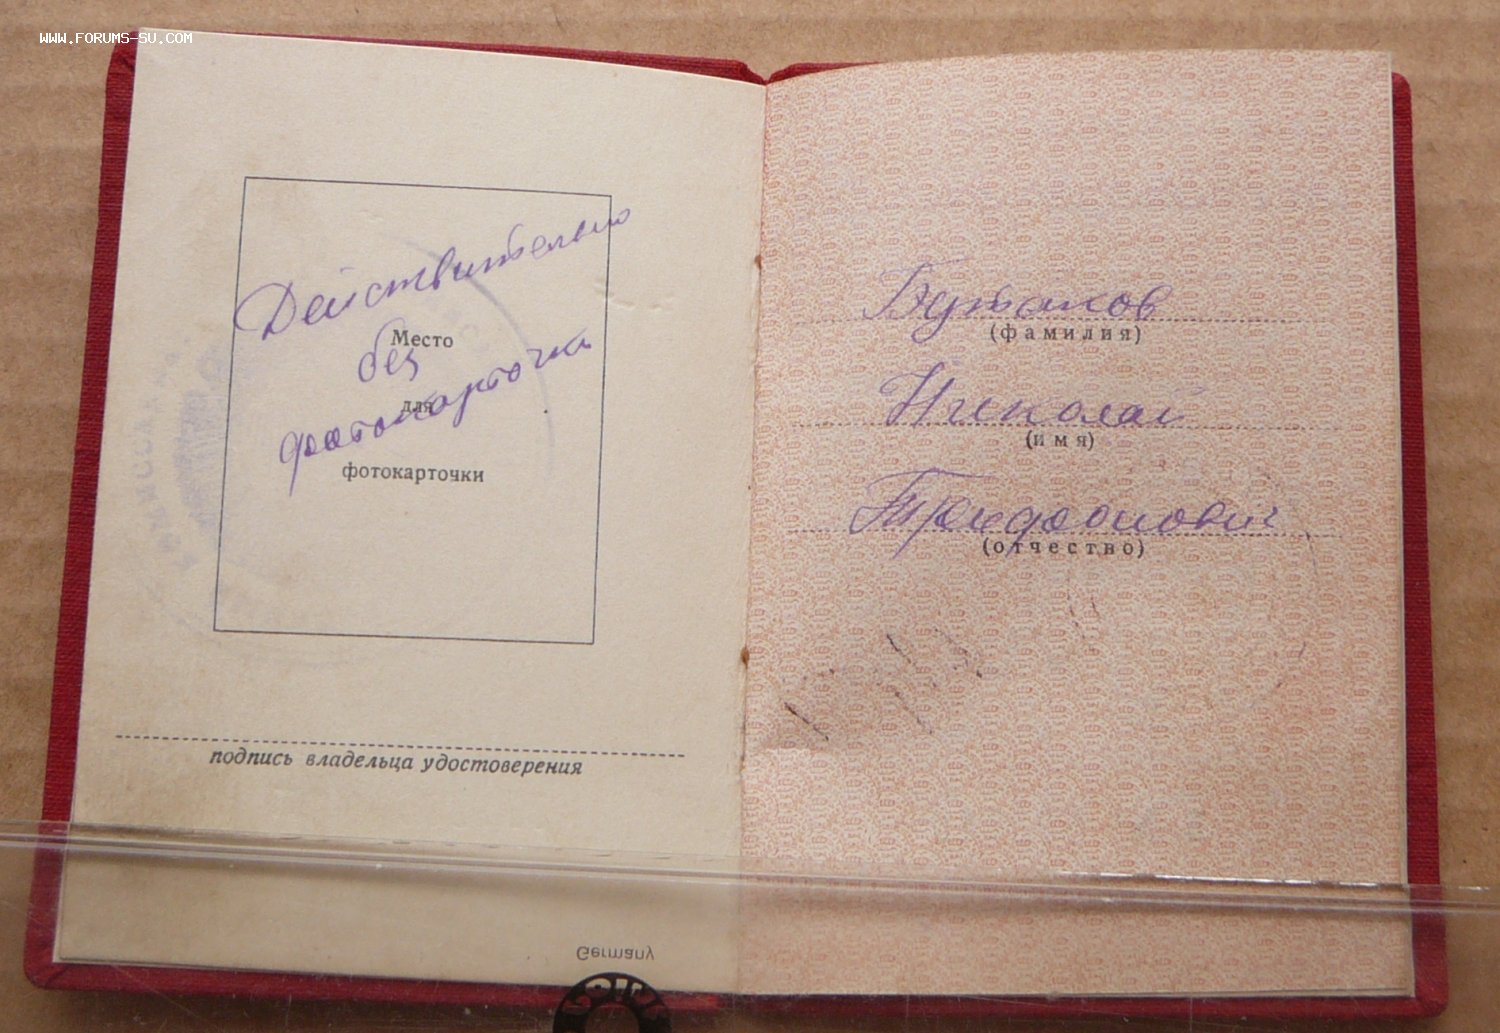 WWW.FORUMS-SU.COM
Действительно
Место
без
для
фотокарточки
фотокарточки
подпись владельца удостоверения
Бутаков
(фамилия)
Николай
(имя)
(отчество)
Germany